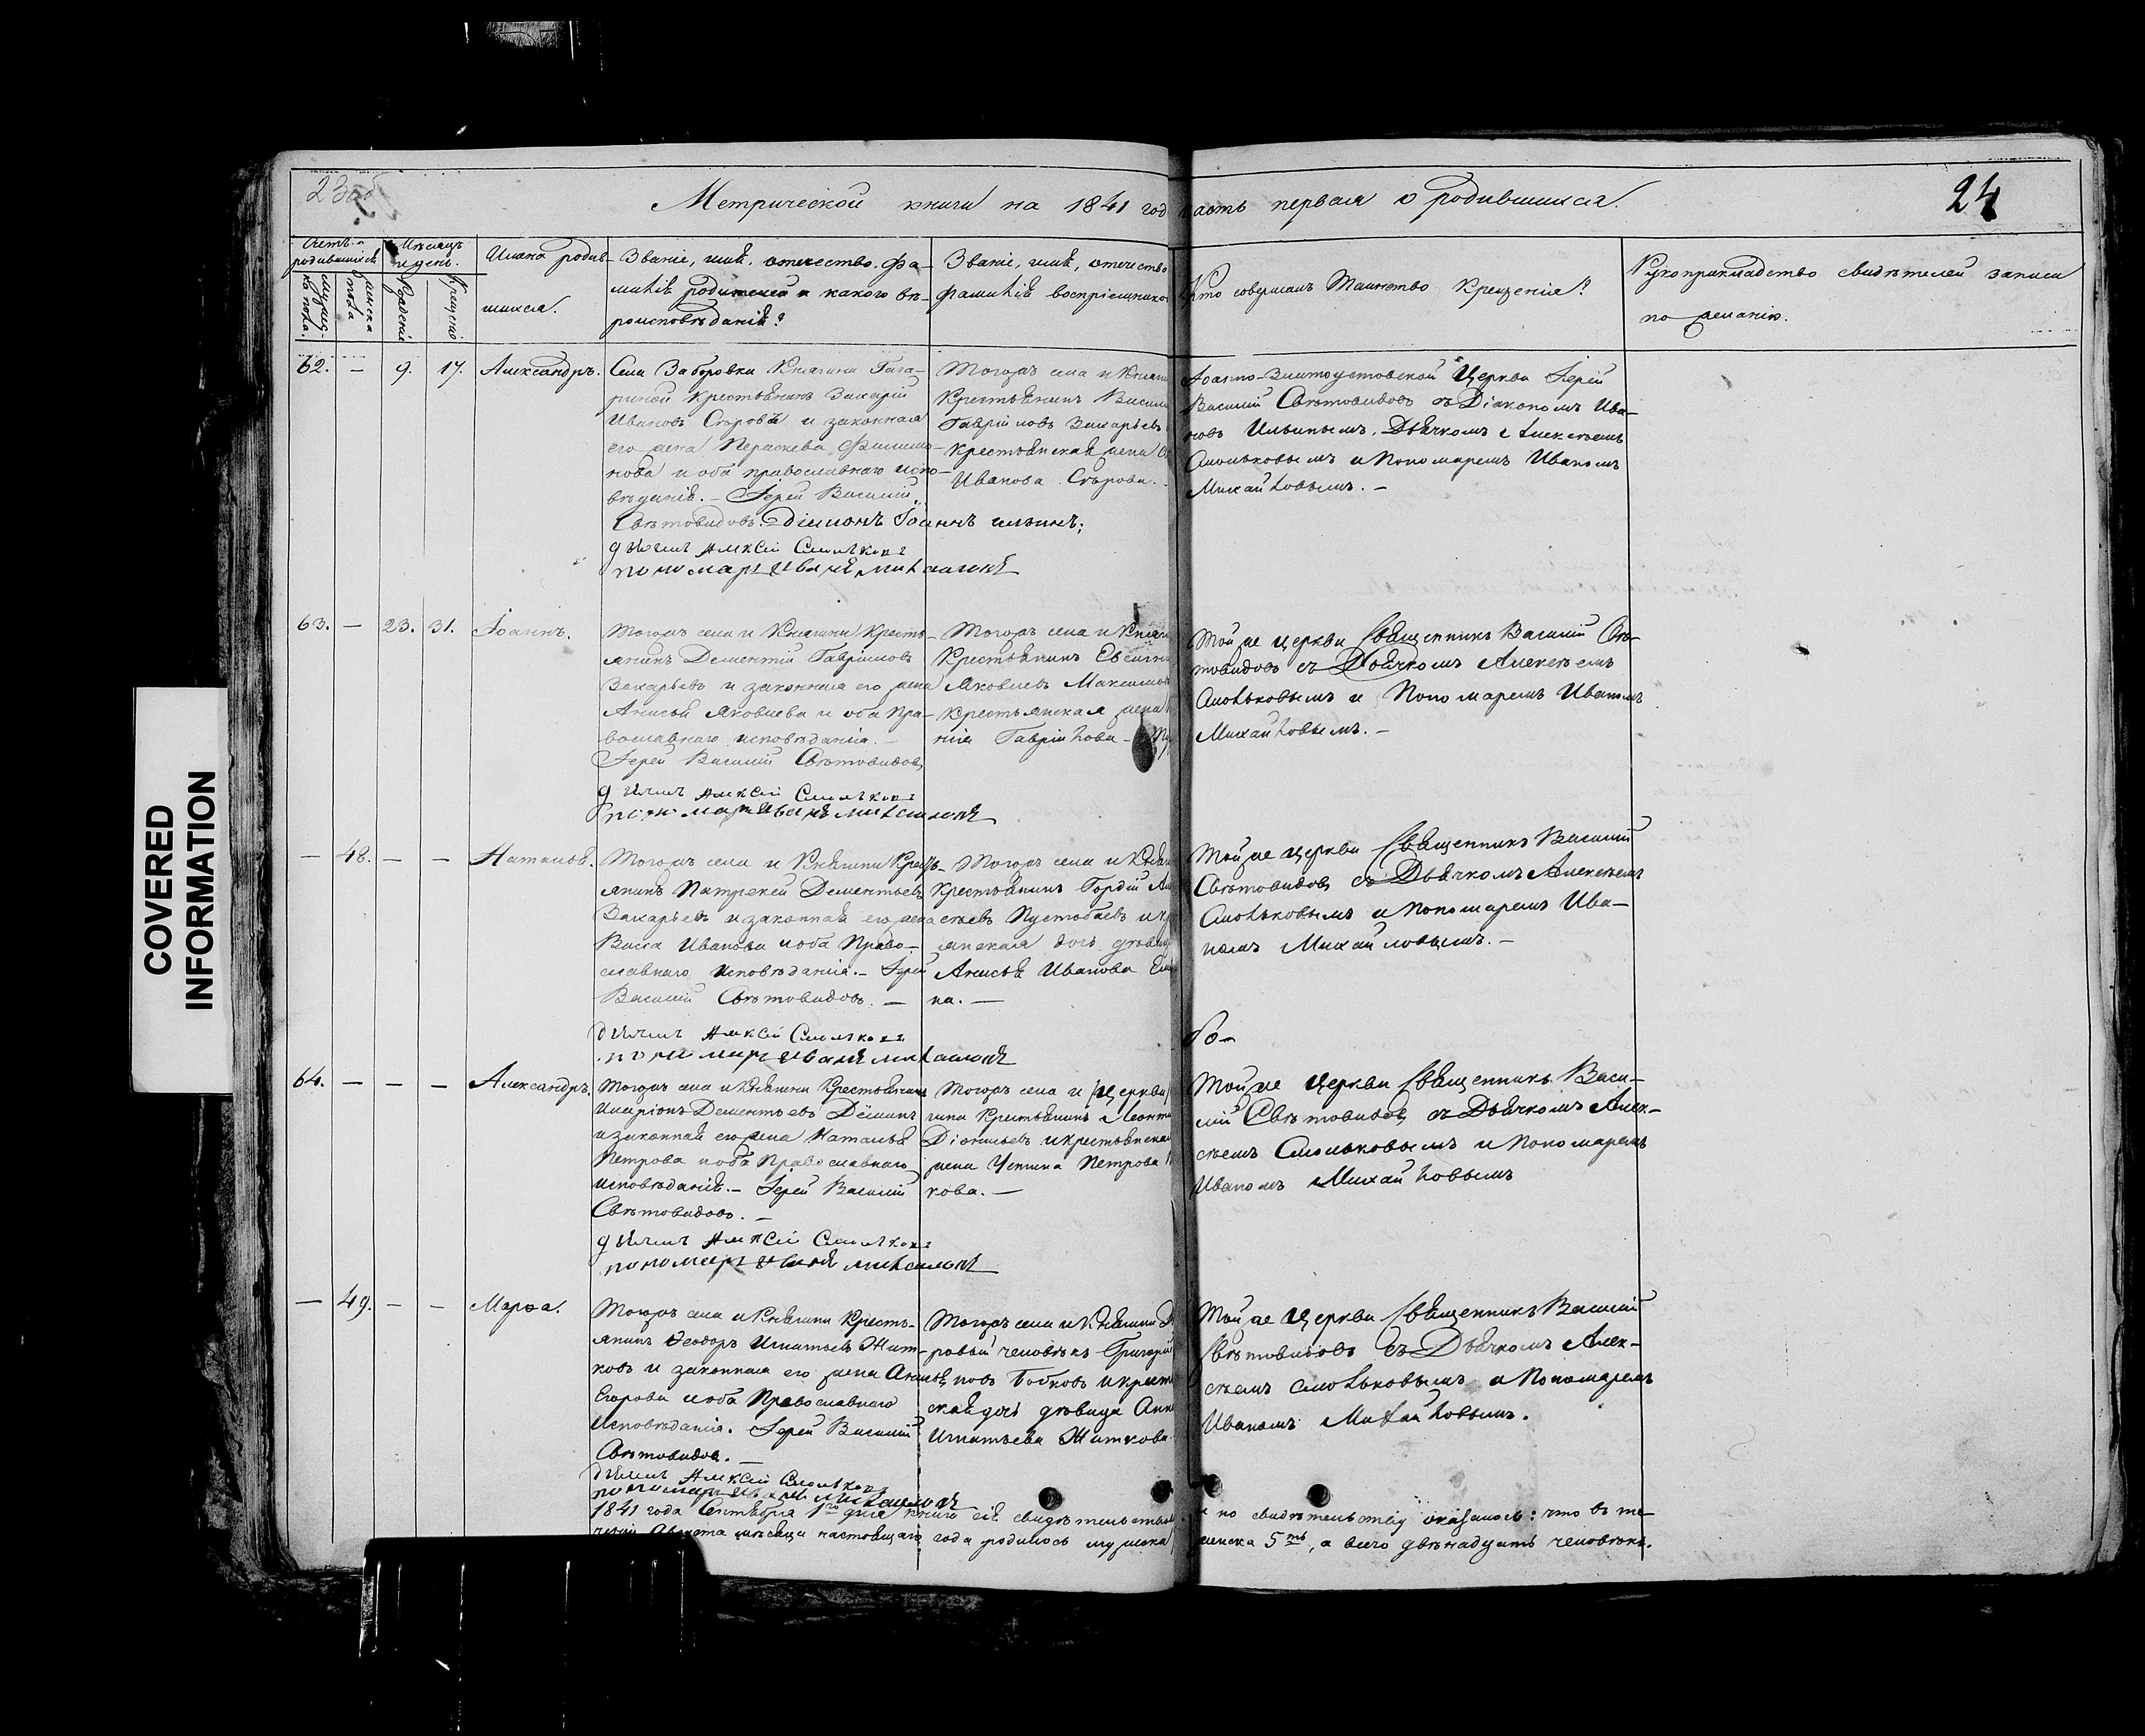 COVERED
INFORMATION
23об
24
Метрической книги на 1841 год часть первая о родившихся.
Счетъ родившихся
мужеска пола.
женска пола
Мѣсяцъ и день.
Рожденія
Крещенія
Имена родив-
шихся.
Званіе, имя, отечество, фа-
милія родителей и какого вѣ-
роисповѣданія?
Званіе, имя, отечество
фамилія воспріемниковъ
Кто совершалъ Таинство Крещенія?
Рукоприкладство свидѣтелей записи
по желанію.
62. — 9. 17. Александръ.
Села Заборовки Княгини Гага-
риной крестьянинъ Захарій
Ивановъ Старовъ и законная
его жена Параскева Филимо-
нова и оба православнаго испо-
вѣданія. — Іерей Василій
Свѣтовидовъ. Діаконъ Іоаннъ Ильинъ;
дьячекъ Алексѣй Смольковъ
пономарь Иванъ Михаиловъ
Тогожъ села и Княгини
Крестьянинъ Васили
Гавріиловъ Захарьевъ
крестьянская жена
Иванова Старова.
Іоанно-Златоустовской Церкви Іерей
Василій Свѣтовидовъ съ Діакономъ Ива-
номъ Ильинымъ, Дьячкомъ Алексѣемъ
Смольковымъ и Пономаремъ Иваномъ
Михайловымъ. —
63. — 23. 31. Іоаннъ.
Тогожъ села и Княгини Кресть-
янинъ Дементій Гавріиловъ
Захарьевъ и законная его жена
Анисья Яковлева и оба Пра-
вославнаго исповѣданія. —
Іерей Василій Свѣтовидовъ
дьячекъ Алексѣй Смольковъ
пономарь Иванъ Михаиловъ
Тогожъ села и Княги
Крестьянинъ Евсигн
Яковлевъ Максимов
крестьянская жена
нія Гаврійлова —
Той же церкви Священникъ Василій Свѣ-
товидовъ съ Дьячкомъ Алексѣемъ
Смольковымъ и Пономаремъ Иваномъ
Михайловымъ. —
— 48. — — Наталья.
Тогожъ села и Княгини Кресть-
янинъ Патрекей Дементьевъ
Захарьевъ и законная его жена
Васса Иванова и оба Право-
славнаго исповѣданія. — Іерей
Василій Свѣтовидовъ. —
дьячекъ Алексѣй Смольковъ
пономарь Иванъ Михаиловъ
Тогожъ села и Княги
крестьянинъ Гордій Ал
ексѣевъ Пустобаевъ и кр
янская дочь дѣвица
Анисья Иванова
на. —
Той же церкви Священникъ Василій
Свѣтовидовъ съ Дьячкомъ Алексѣемъ
Смольковымъ и Пономаремъ Ива-
номъ Михайловымъ. —
64. — — — Александръ.
Тогожъ села и Княгини Крестьянинъ
Иларіонъ Дементьевъ Дёминъ
и законная его жена Наталья
Петрова и оба Православнаго
исповѣданія. — Іерей Василій
Свѣтовидовъ. —
дьячекъ Алексѣй Смольковъ
пономарь Иванъ Михаиловъ
Тогожъ села и (Церкви)
гини Крестьянинъ Леонти
Діонисьевъ и крестьянская
жена Устина Петрова
кова. —
Той же Церкви Священникъ Васи-
лій Свѣтовидовъ съ Дьячкомъ Алек-
сѣемъ Смольковымъ и Пономаремъ
Иваномъ Михайловымъ
— 49. — — Марѳа.
Тогожъ села и Княгини Кресть-
янинъ Ѳеодоръ Игнатьевъ Жит-
ковъ и законная его жена Анисья
Егорова и оба Православнаго
Исповѣданія. Іерей Василій
Свѣтовидовъ. —
дьячекъ Алексѣй Смольковъ
пономарь Иванъ Михаиловъ
Тогожъ села и Княгини Д
ровый человѣкъ Григорій
новъ Бобковъ и крест
ская дочь дѣвица Анн
Игнатьева Житкова.
Той же Церкви Священникъ Василій
Свѣтовидовъ съ Дьячкомъ Алек-
сѣемъ Смольковымъ и Пономаремъ
Иваномъ Михайловымъ.
1841 года Сентября 1го дня книга сія свидѣтельствов и по свидѣтельству оказалось: что въ те-
ченіи Августа мѣсяца настоящаго года родилось мужска женска 5ть, а всего двѣнадцать человѣкъ.